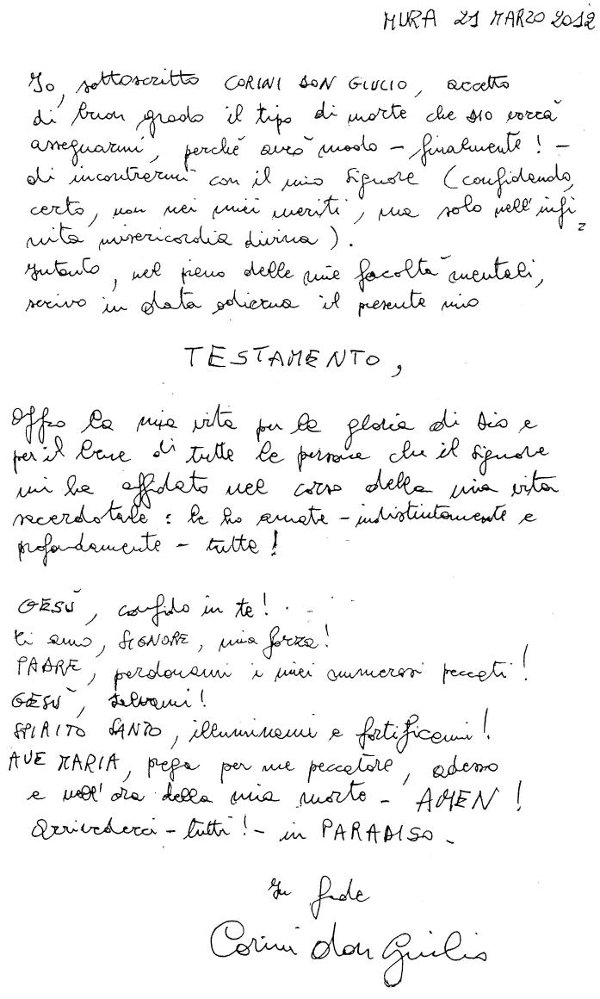 MURA 21 MARZO 2012
Io, sottoscritto CORINI DON GIULIO, accetto
di buon grado il tipo di morte che DIO vorrà
assegnarmi, perché avrò modo - finalmente! -
di incontrarmi con il mio Signore (confidando,
certo, non nei miei meriti, ma solo nell'infi
nita misericordia divina).
Intanto, nel pieno delle mie facoltà mentali,
scrivo in data odierna il presente mio
TESTAMENTO,
Offro la mia vita per la gloria di Dio e
per il bene di tutte le persone che il Signore
mi ha affidato nel corso della mia vita
sacerdotale: le ho amate - indistintamente e
profondamente - tutte!
GESÙ, confido in te!
ti amo, SIGNORE, mia forza!
PADRE, perdonami i miei numerosi peccati!
GESÙ, salvami!
SPIRITO SANTO, illuminami e fortificami!
AVE MARIA, prega per me peccatore, adesso
e nell'ora della mia morte - AMEN!
Arrivederci - tutti! - in PARADISO -
In fede
Corini don Giulio